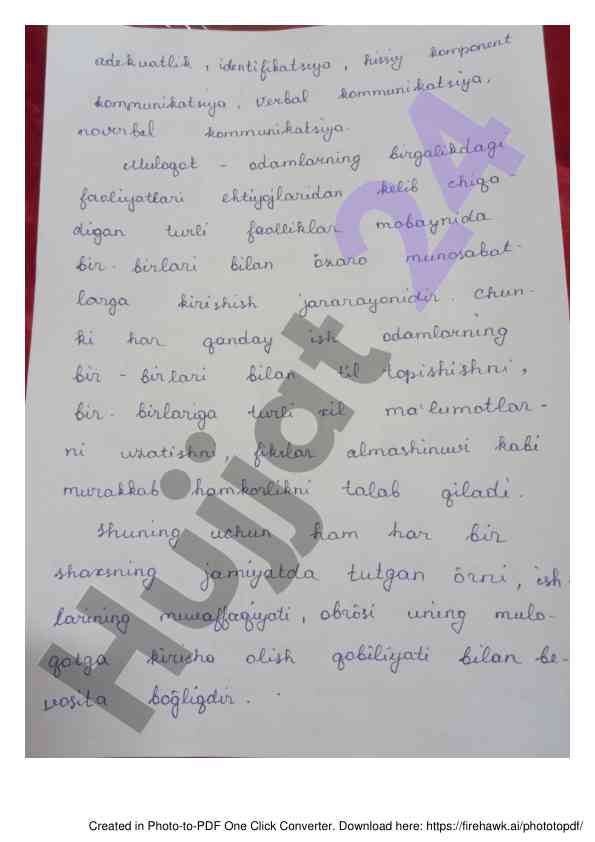 adekvatlik, identifikatsiya, hissiy komponent
kommunikatsiya, verbal kommunikatsiya,
noverbal kommunikatsiya.
Muloqot - odamlarning birgalikdagi
faoliyatlari ehtiyojlaridan kelib chiqa-
digan turli faolliklar mobaynida
bir-birlari bilan õzaro munosabat-
larga kirishish jararayonidir. Chun-
ki har qanday ish odamlarning
bir - birlari bilan til topishishni,
bir-birlariga turli xil ma'lumotlar-
ni uzatishni, fikrlar almashinuvi kabi
murakkab hamkorlikni talab qiladi.
Shuning uchun ham har bir
shaxsning jamiyatda tutgan õrni, ish
larining muvaffaqiyati, obrõsi uning mulo-
qotga kirisha olish qobiliyati bilan be-
vosita boğliqdir.
Hujjat 24
Created in Photo-to-PDF One Click Converter. Download here: https://firehawk.ai/phototopdf/